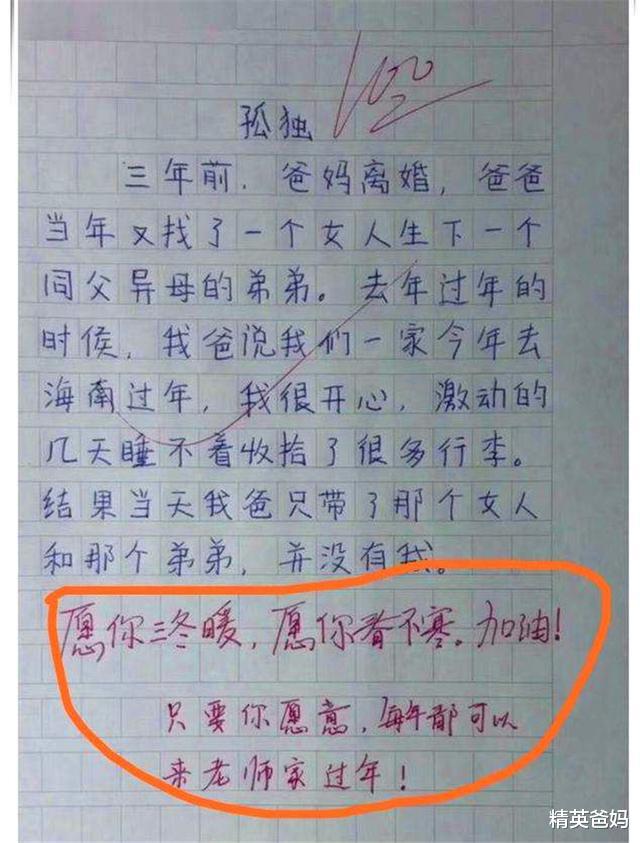 100
孤独
三年前,爸妈离婚,爸爸
当年又找了一个女人生下一个
同父异母的弟弟。去年过年的
时候,我爸说我们一家今年去
海南过年,我很开心,激动的
几天睡不着收拾了很多行李。
结果当天我爸只带了那个女人
和那个弟弟,并没有我。
愿你三冬暖,愿你春不寒。加油!
只要你愿意,每年都可以
来老师家过年!
精英爸妈